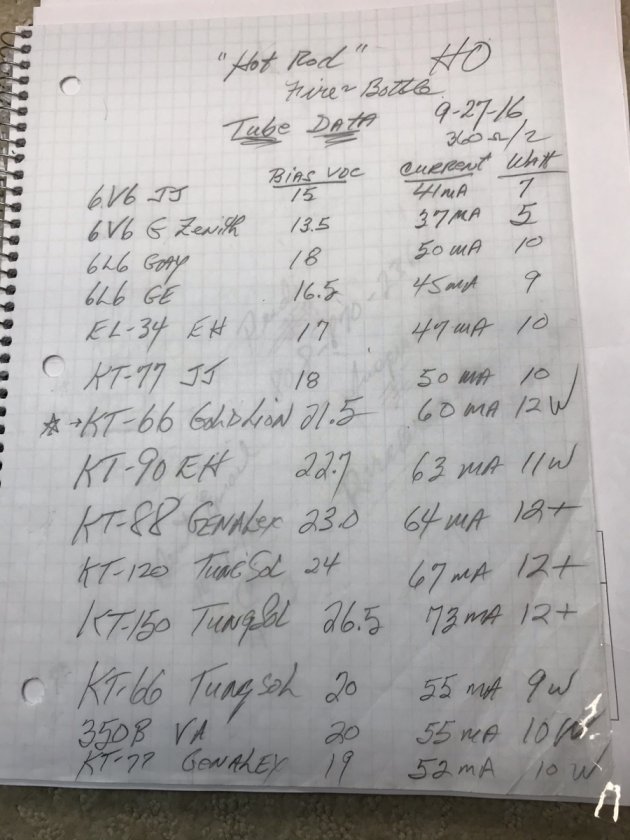 "Hot Rod" HO
Fire Bottle
9-27-16
Tube DATA 360Ω/2
BIAS VDC CURRENT WATT
6V6 JJ 15 41mA 7
6V6 G Zenith 13.5 37MA 5
6L6 18 50 mA 10
6L6 GE 16.5 45mA 9
EL-34 EH 17 47mA 10
KT-77 JJ 18 50 mA 10
☆→KT-66 GOLDLION 21.5 60 mA 12W
KT-90 EH 22.7 63 mA 11W
KT-88 GENALEX 23.0 64 mA 12+
KT-120 TUNGSOL 24 67 mA 12+
KT-150 TUNGSOL 26.5 73 mA 12+
KT-66 TUNGSOL 20 55 mA 9W
350B VA 20 55 mA 10W
KT-77 GENALEX 19 52 mA 10 W